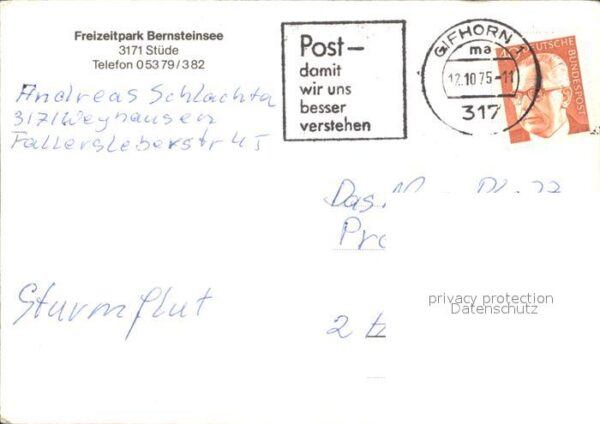 Freizeitpark Bernsteinsee
3171 Stüde
Telefon 05379/382
Andreas Schlachta
3171 Weyhausen
Fallersleberstr 4I
Post –
damit
wir uns
besser
verstehen
GIFHORN 1
ma
12.10.75-11
317
DEUTSCHE
BUNDESPOST
Das
Sturmflut
2
privacy protection
Datenschutz